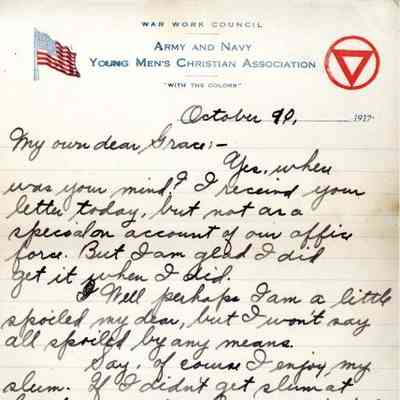 WAR WORK COUNCIL
ARMY AND NAVY
YOUNG MEN'S CHRISTIAN ASSOCIATION
"WITH THE COLORS"
October 1917
My own dear Grace:-
Yes, when
was your mind? I received your
letter today, but not as a
account of our office
force. But I am glad I did
get it when I did.
Well perhaps I am a little
spoiled my dear, but I won't say
all spoiled by any means.
Say, of course I enjoy my
slum. If I didn't get slum at